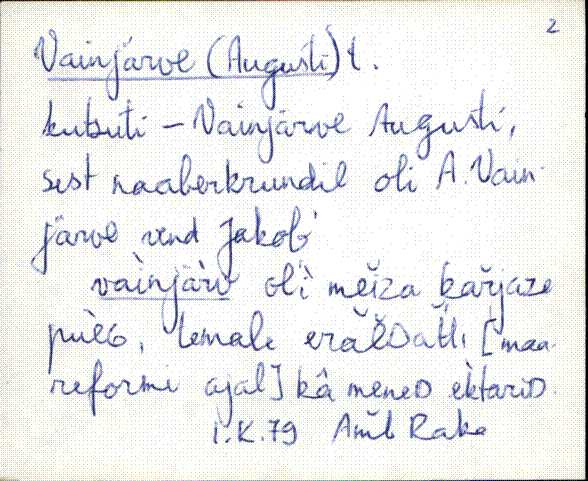 2
Vainjärve (Augusti) t.
kutsuti – Vainjärve Augusti,
sest naaberkrundil oli A. Vain-
järve vend Jakob
vàinjärv oli meĭza kařjaze
pùèG, temale erälDatti [maa-
reformi ajal] kâ meneD ektariD.
i.K.79